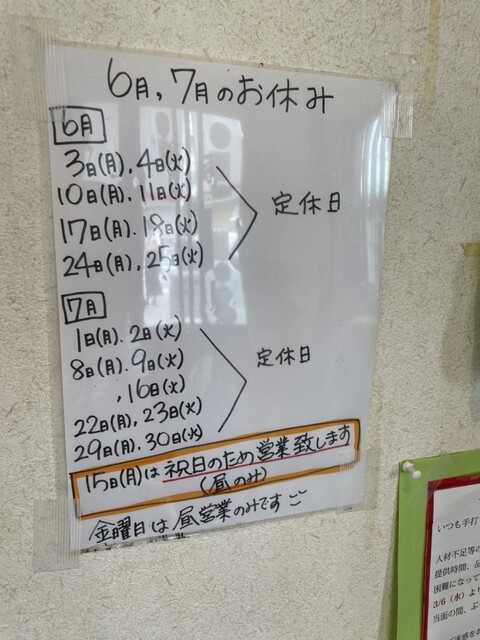 6月,7月のお休み
6月
3日(月).4日(火)
10日(月).11日(火)
17日(月).18日(火)
24日(月),25日(火)
定休日
7月
1日(月).2日(火)
8日(月).9日(火)
,16日(火)
22日(月),23日(火)
29日(月).30日(火)
定休日
15日(月)は祝日のため営業致します
(昼のみ)
金曜日は昼営業のみです
いつも手打
人材不足等の
提供時間、品
困難になって
3/6(水)より
当面の間、ぶ